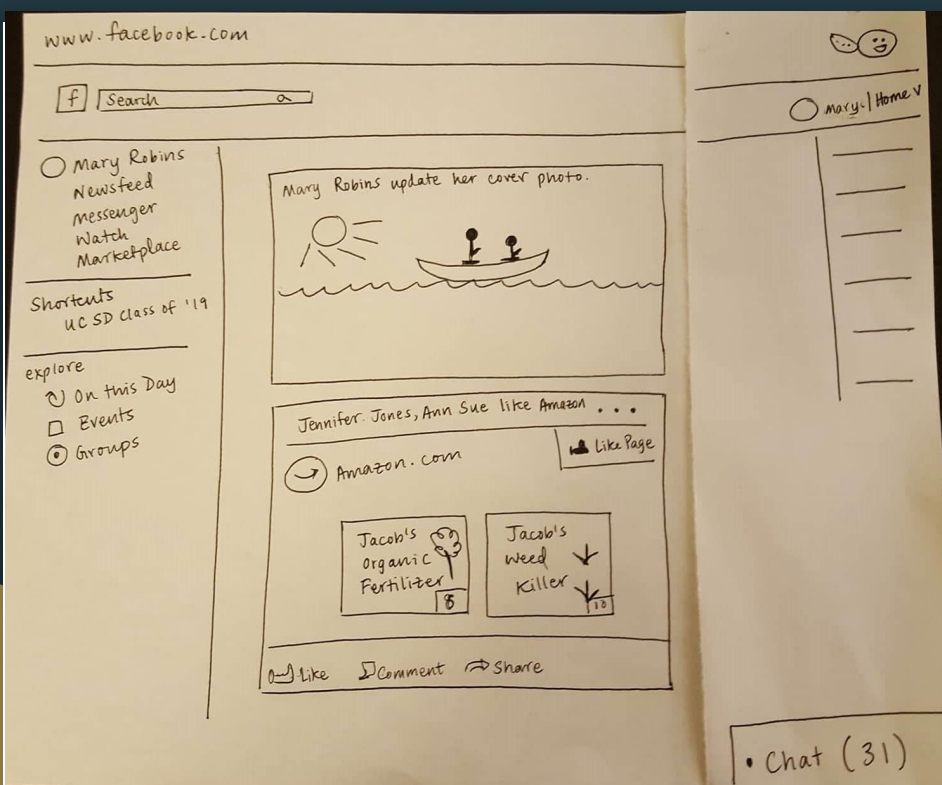 www.facebook.com
f
Search
Mary. | Home v
Mary Robins
Newsfeed
Messenger
Watch
Marketplace
Shortcuts
UC SD Class of '19
explore
On this Day
Events
Groups
Mary Robins update her cover photo.
Jennifer Jones, Ann Sue like Amazon ...
Like Page
Amazon.com
Jacob's
Organic
Fertilizer
8
Jacob's
Weed
Killer
10
Like Comment Share
• Chat (31)